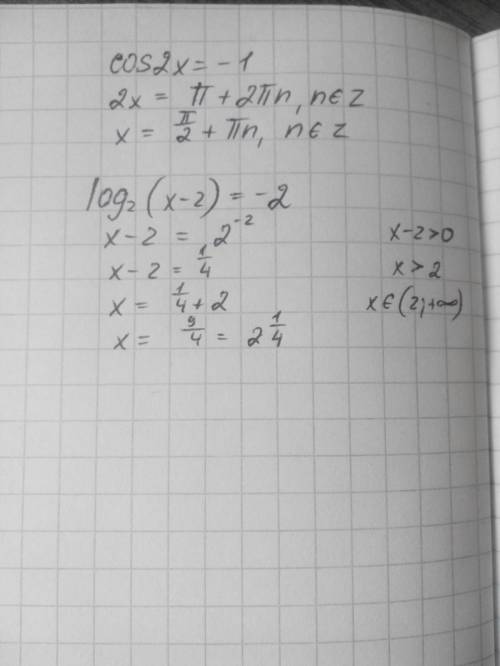 cos2x = -1
2x = π + 2πn, n∈z
x = π/2 + πn, n∈z
log₂(x-2) = -2
x-2 = 2⁻²
x-2 = 1/4
x = 1/4 + 2
x = 9/4 = 2 1/4
x-2>0
x>2
x∈(2;+∞)